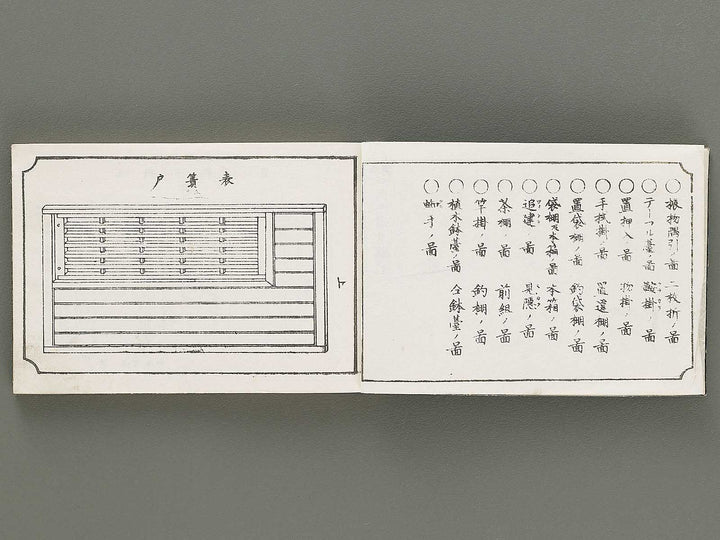 ○根物隅引ノ圖 二枚折ノ圖
○テーブル臺ノ圖 掛ノ圖
○置押入ノ圖 物掛ノ圖
○手拭掛ノ圖 置違棚ノ圖
○置袋棚ノ圖 釣袋棚ノ圖
○袋棚及本箱ノ圖 本箱ノ圖
○追建ノ圖 見隠ノ圖
○茶棚ノ圖 前組ノ圖
○竿掛ノ圖 釣棚ノ圖
○植木鉢臺ノ圖 仝鉢臺ノ圖
○ノ圖
表簀戸
上